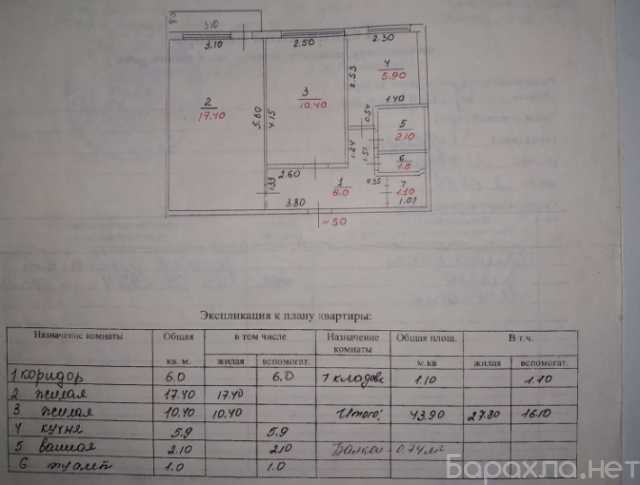 3.10
3.10
2.50
2.30
4
5.90
2.53
3
10.40
2
17.40
5.60
4.15
1.40
0.54
5
2.10
1.24
1.51
6
1.0
2.60
1
6.0
0.55
7
1.10
1.33
3.80
1.01
Экспликация к плану квартиры:
Назначение комнаты Общая в том числе Назначение комнаты Общая площ. В т.ч.
кв. м. жилая вспомогат. м.кв жилая вспомогат.
1 коридор 6.0 6.0 7 кладов 1.10 1.10
2 жилая 17.40 17.40
3 жилая 10.40 10.40 Итого: 43.90 27.80 16.10
4 кухня 5.9 5.9
5 ванная 2.10 2.10 Балкон 0.74 м²
6 туалет 1.0 1.0
Барахла.нет